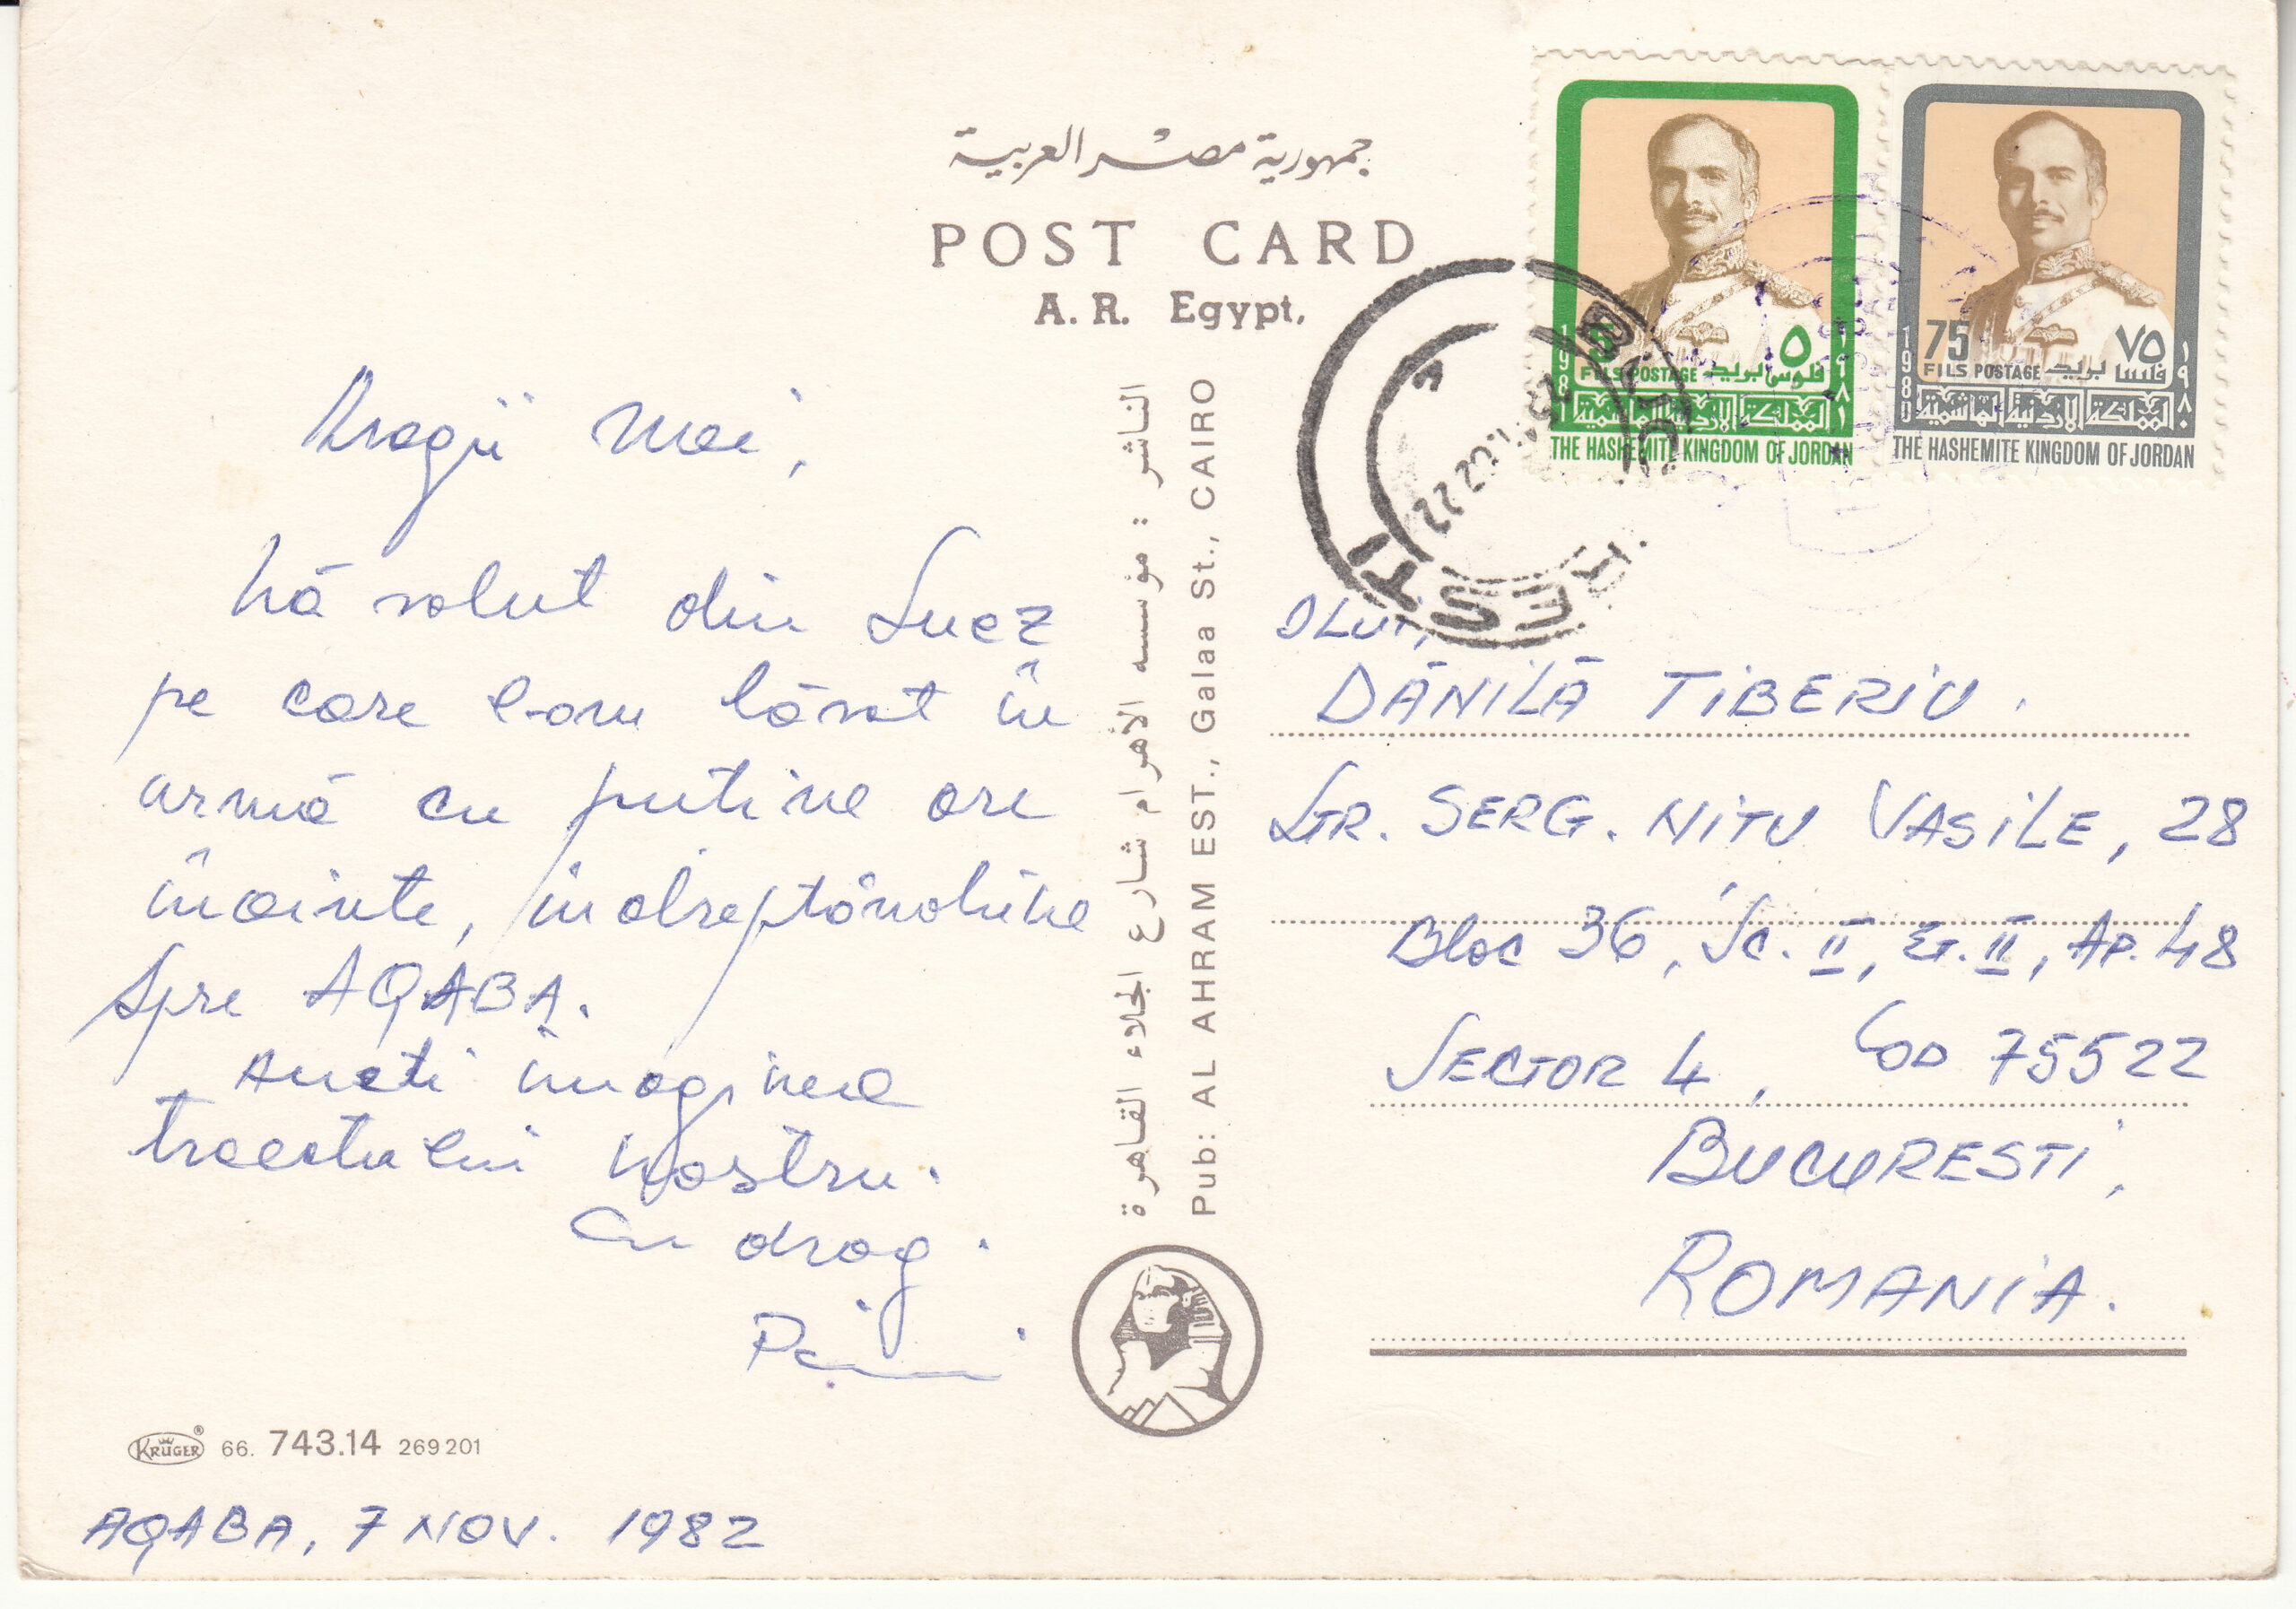 جمهورية مصر العربية
POST CARD
A. R. Egypt.
Dragii mei,
Vă salut din Suez
pe care l-am lăsat în
urmă cu puține ore
înainte, îndreptându-ne
spre AQABA.
Aveti imaginea
traseului nostru.
Cu drag.
KRÜGER ® 66. 743.14 269201
AQABA, 7 NOV. 1982
الناشر : مؤسسه الأهرام شارع الجلاء القاهرة
Pub: AL AHRAM EST., Galaa St., CAIRO
5 ٥
FILS POSTAGE فلوس بريد
1981 ١٩٨١
المملكة الأردنية الهاشمية
THE HASHEMITE KINGDOM OF JORDAN
75 ٧٥
FILS POSTAGE فلسا بريد
1980 ١٩٨٠
المملكة الأردنية الهاشمية
THE HASHEMITE KINGDOM OF JORDAN
BUCURESTI
DLUI,
DĂNILĂ TIBERIU.
STR. SERG. NITU VASILE, 28
Bloc 36, Sc. II, Et. II, Ap. 48
SECTOR 4, COD 75522
BUCURESTI,
ROMANIA.